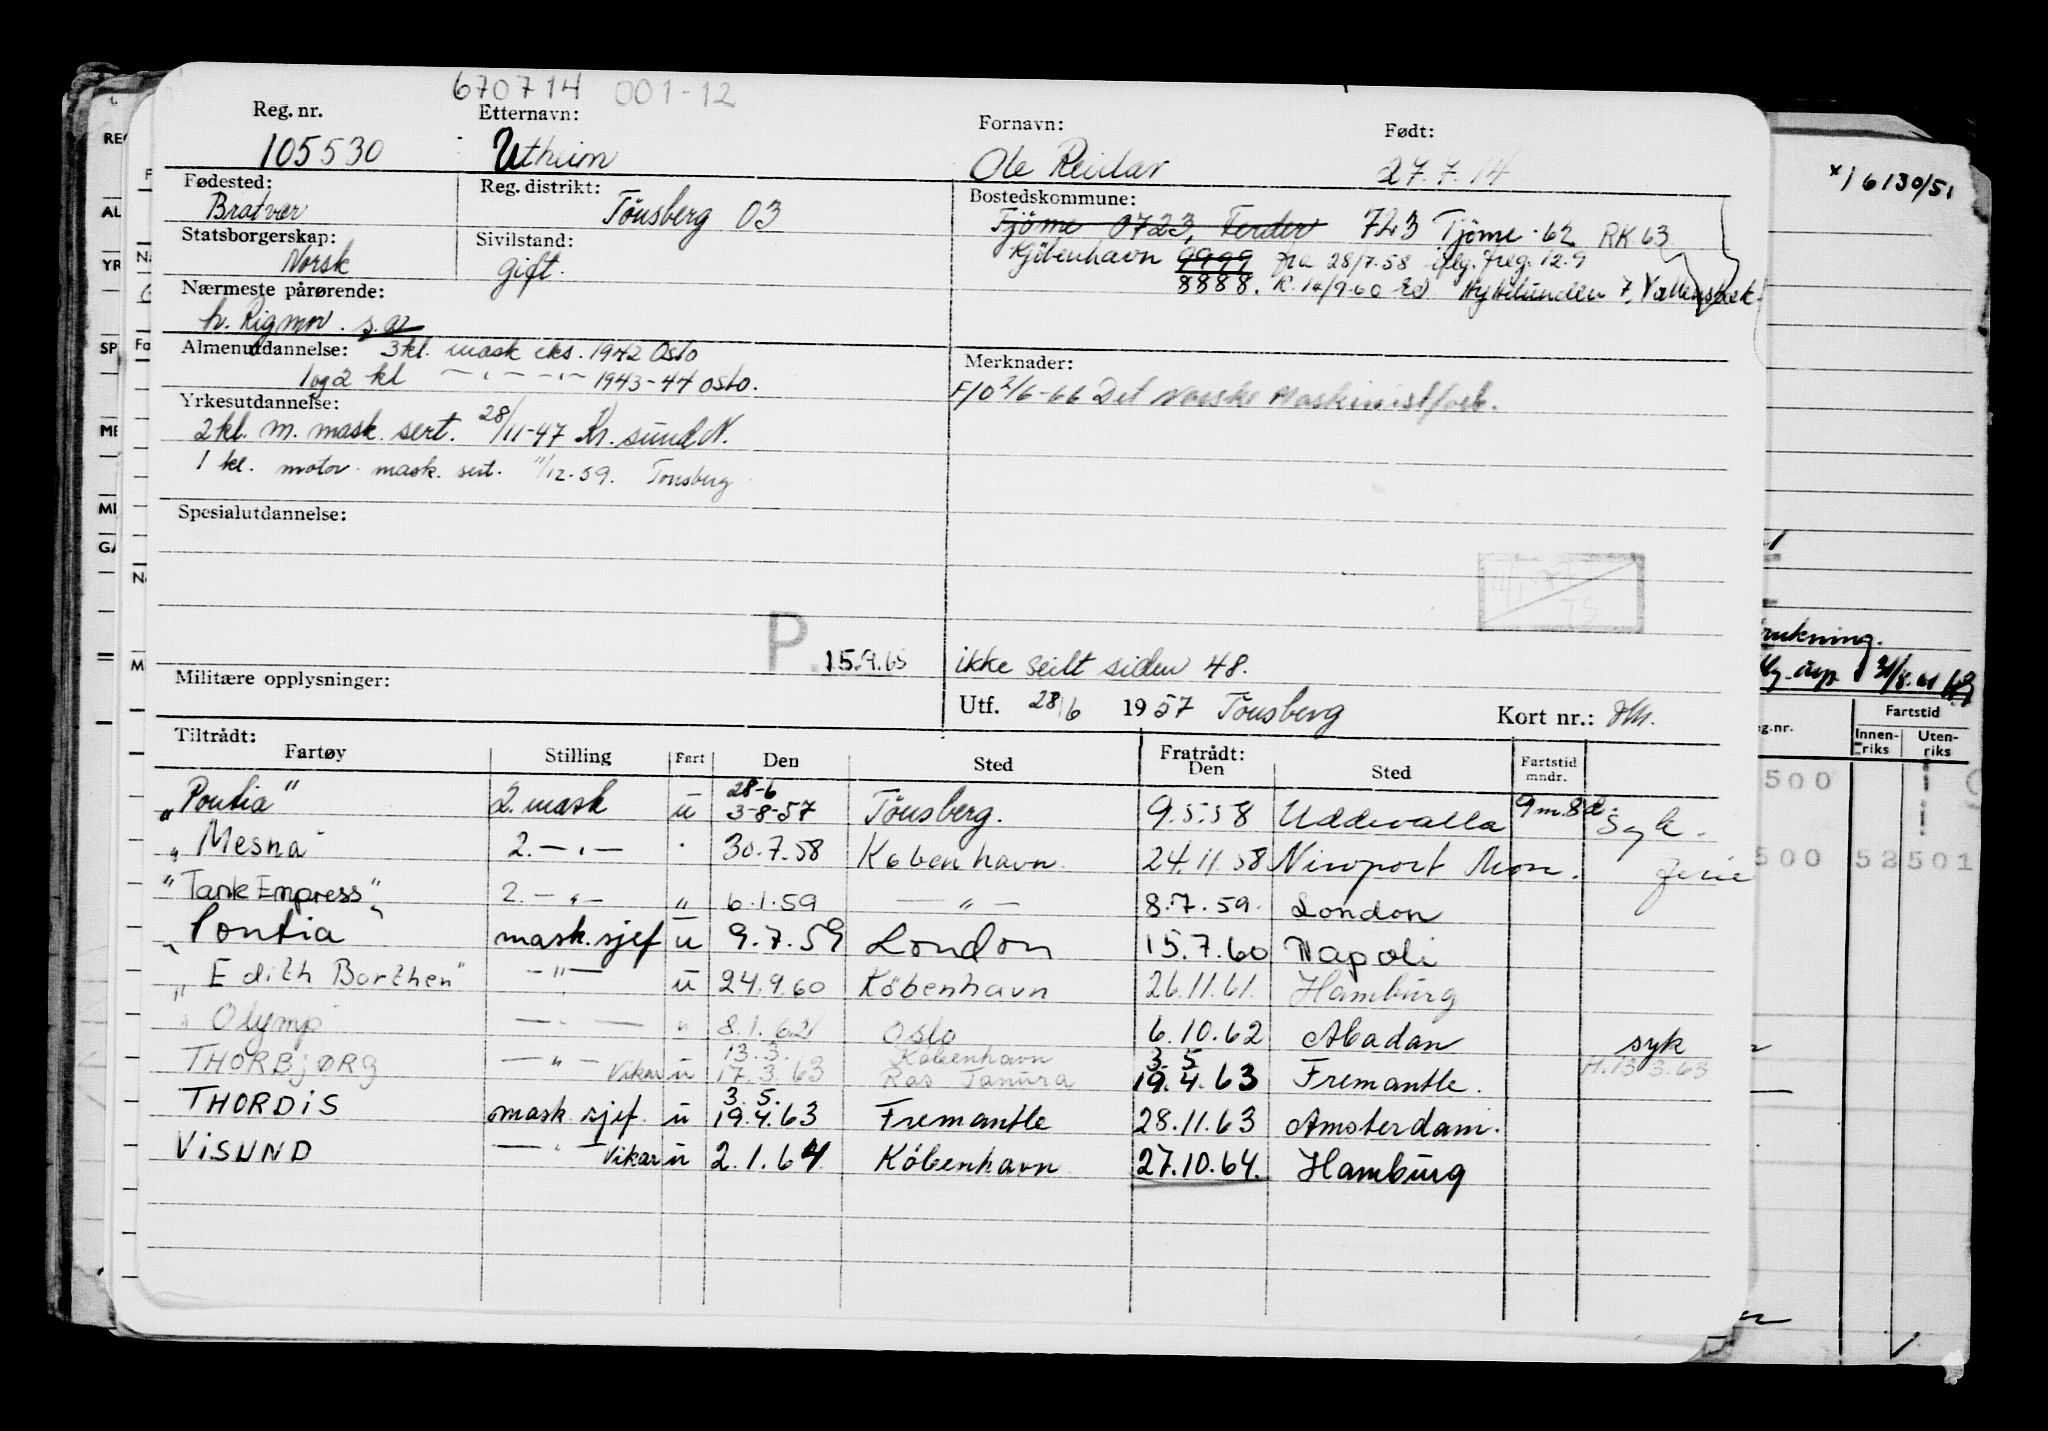 670714 001-12
Reg. nr. Etternavn: Fornavn: Født:
105530 Utheim Ole Reidar 27.7.14
Fødested: Reg. distrikt: Bostedskommune:
Bratvær Tönsberg 03 Tjöme 0723, Ferder 723 Tjöme -62 RK 63
Statsborgerskap: Sivilstand: Kjöbenhavn 9999 fra 28/7.58 iflg. freg. 12.9
Norsk gift. 8888. R. 14/9.60
Nærmeste pårørende:
h. Rigmor. s.a.
Almenutdannelse: 3 kl. mask eks. 1942 Oslo Merknader:
1 og 2 kl — " — " — 1943-44 Oslo. F/O 2/6-66 Det Norske Maskinistforb.
Yrkesutdannelse:
2 kl. m. mask. sert. 28/11-47 Kr. sund N.
1 kl. motor mask. sert. 11/12.59. Tønsberg
Spesialutdannelse:
P. 15.9.65 ikke seilt siden 48.
Militære opplysninger:
Utf. 28/6 1957 Tönsberg Kort nr.:
Tiltrådt: Fratrådt:
Fartøy Stilling Fart Den Sted Den Sted Fartstid mndr.
28-6
"Pontia" 2. mask u 3-8-57 Tönsberg. 9.5.58 Uddevalla 9 m. 8 d. Syk.
" Mesna 2. — " — 30.7.58 København 24.11.58 Newport Mon. ferie
"Tank Empress" 2. — " — " 6.1.59 — " — 8.7.59. London
" Pontia mask. sjef u 9.7.59 London 15.7.60 Napoli
" Edith Borthen" — " — u 24.9.60 Köbenhavn 26.11.61. Hamburg
" Olymp — " — " 8.1.62 Oslo 6.10.62 Abadan syk
13.3. København 3. 5
THORBJØRG — " — Vikar u 17.3.63 Ras Tanura 19.4.63 Fremantle. H. 13.3.63
3. 5.
THORDIS mask. sjef. u 19.4.63 Fremantle 28.11.63 Amsterdam.
VISUND — " — Vikar u 2.1.64 Köbenhavn 27.10.64. Hamburg
x) 6130/51
Fartstid
Innen-riks Uten-riks
500
500 52 501